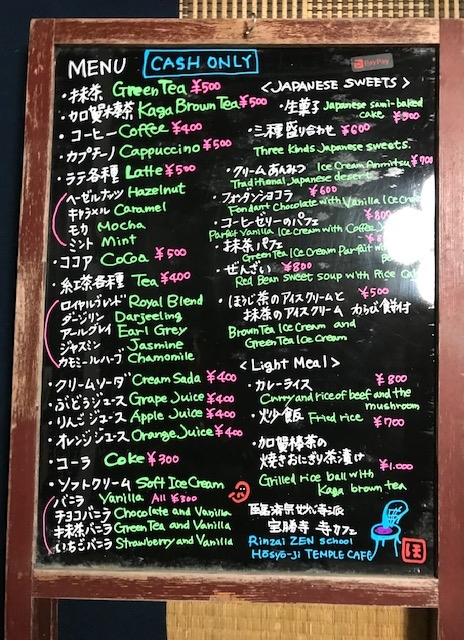 MENU CASH ONLY
PayPay
・抹茶 Green Tea ¥500
・加賀棒茶 Kaga Brown Tea ¥500
・コーヒー Coffee ¥400
・カプチーノ Cappuccino ¥500
・ラテ各種 Latte ¥500
ヘーゼルナッツ Hazelnut
キャラメル Caramel
モカ Mocha
ミント Mint
・ココア CoCoa ¥500
・紅茶各種 Tea ¥400
ロイヤルブレンド Royal Blend
ダージリン Darjeeling
アールグレイ Earl Grey
ジャスミン Jasmine
カモミールハーブ Chamomile
・クリームソーダ Cream Sada ¥400
・ぶどうジュース Grape Juice ¥400
・りんごジュース Apple Juice ¥400
・オレンジジュース Orange Juice ¥400
・コーラ Coke ¥300
・ソフトクリーム Soft Ice Cream
バニラ Vanilla All ¥300
チョコバニラ Chocolate and Vanilla
抹茶バニラ Green Tea and Vanilla
いちごバニラ Strawberry and Vanilla
<JAPANESE SWEETS>
・生菓子 Japanese sami-baked
cake ¥500
・三種盛り合わせ ¥600
Three Kinds Japanese sweets.
・クリームあんみつ Ice Cream Anmitsu ¥700
Traditional Japanese desert
・フォンダンショコラ ¥600
Fondant Chocolate with Vanilla Ice Cream
・コーヒーゼリーのパフェ ¥800
Parfait Vanilla Ice Cream with Coffee
・抹茶パフェ
Green Tea Ice Cream Parfait with
・ぜんざい ¥800
Red Bean sweet soup with Rice Cake
・ほうじ茶のアイスクリームと ¥500
抹茶のアイスクリーム わらび餅付
Brown Tea Ice Cream and
Green Tea Ice Cream
<Light Meal>
・カレーライス ¥800
Curry and rice of beef and the
mushroom
・炒飯 Fried rice ¥700
・加賀棒茶の
焼きおにぎり茶漬け ¥1.000
Grilled rice ball with
Kaga brown tea
臨済宗
宝勝寺 寺カフェ
Rinzai ZEN school
Hōsyō-Ji TEMPLE CAFE
ほ